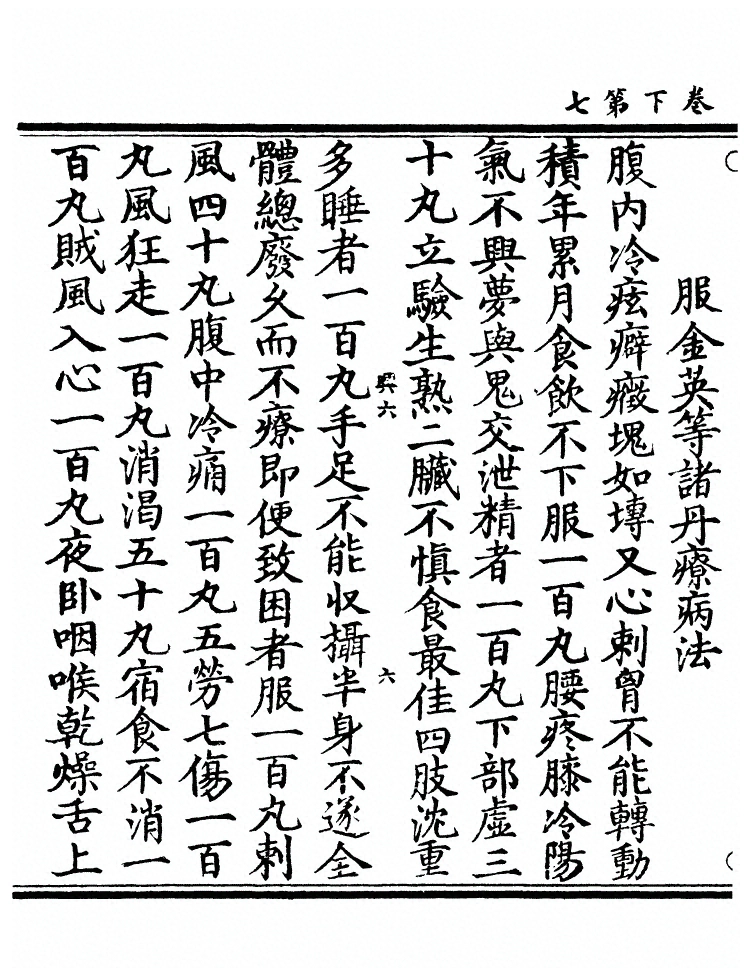 卷下第七
服金英等諸丹療病法
腹内冷痃癖癥塊如塼又心刺胷不能轉動
積年累月食飲不下服一百丸腰疼膝冷陽
氣不興夢與鬼交泄精者一百丸下部虛三
十丸立驗生熟二臟不慎食最佳四肢沈重
興六
六
多睡者一百丸手足不能收攝半身不遂全
體總廢久而不療即便致困者服一百丸刺
風四十丸腹中冷痛一百丸五勞七傷一百
丸風狂走一百丸消渴五十丸宿食不消一
百丸賊風入心一百丸夜卧咽喉乾燥舌上